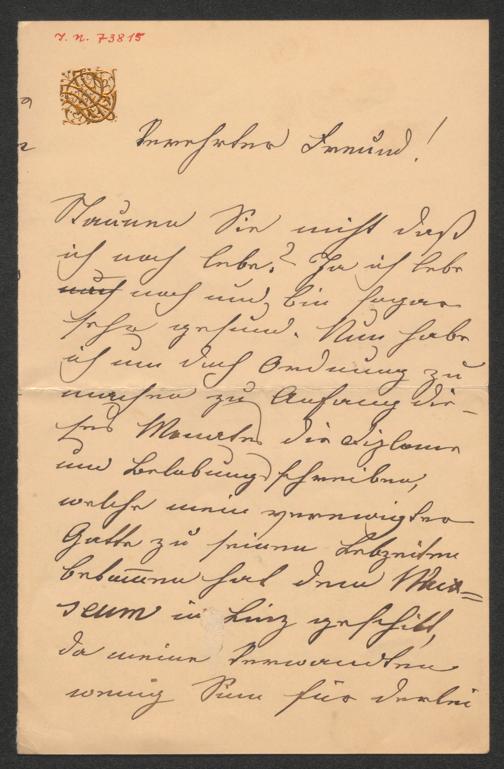 I. N. 73815
Verehrter Freund!
Staunen Sie nicht daß
ich noch lebe? Ja ich lebe
noch und bin sogar
sehr gesund. Nun habe
ich um doch Ordnung zu
machen zu Anfang die-
ses Monates die Diplome
und Belobungsschreiben,
welche mein verewigter
Gatte zu seinen Lebzeiten
bekommen hat dem Mu=
seum in Linz geschikt,
da meine Verwandten
wenig Sinn für derlei